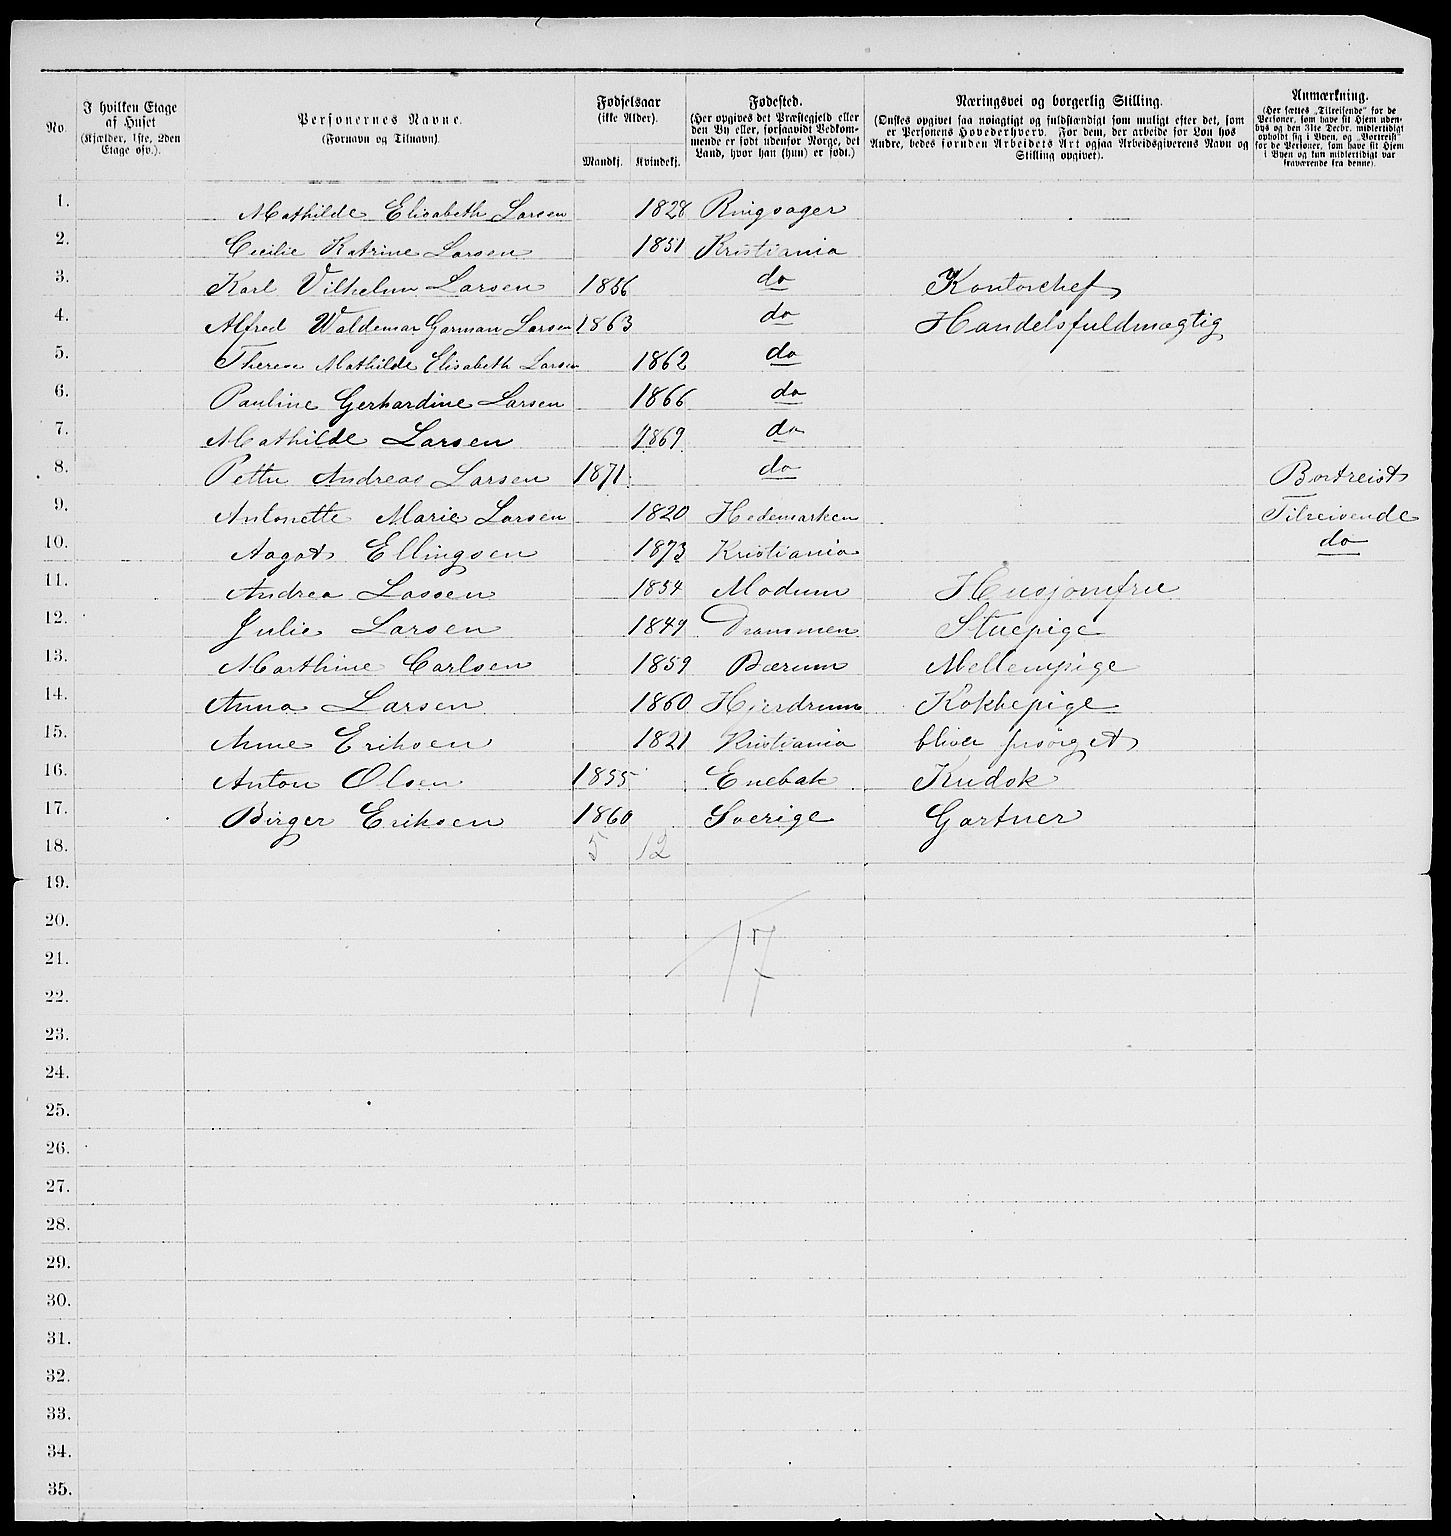 No.
I hvilken Etage af Huset (Kjælder, 1ste, 2den Etage osv.).
Personernes Navne. (Fornavn og Tilnavn).
Fødselsaar (ikke Alder).
Mandkj.
Kvindekj.
Fødested. (Her opgives det Præstegjeld eller den By eller, forsaavidt Vedkommende er født udenfor Norge, det Land, hvor han (hun) er født.)
Næringsvei og borgerlig Stilling. (Ønskes opgivet saa nøiagtigt og fuldstændigt som muligt efter det, som er Personens Hovederhverv. For dem, der arbeide for Løn hos Andre, bedes foruden Arbeidets Art ogsaa Arbeidsgiverens Navn og Stilling opgivet).
Anmærkning. (Her sættes „Tilreisende" for de Personer, som have sit Hjem udenbys og den 31te Decbr. midlertidigt opholdt sig i Byen, og „Bortreist" for de Personer, som have sit Hjem i Byen og kun midlertidigt var fraværende fra denne).
1. Mathilde Elisabeth Larsen 1828 Ringsager
2. Cecilie Katrine Larsen 1851 Kristiania
3. Karl Vilhelm Larsen 1856 do Kontorchef
4. Alfred Waldemar Garman Larsen 1863 do Handelsfuldmægtig
5. Therese Mathilde Elisabeth Larsen 1862 do
6. Pauline Gerhardine Larsen 1866 do
7. Mathilde Larsen 1869 do
8. Petter Andreas Larsen 1871 do Bortreist
9. Antonette Marie Larsen 1820 Hedemarken Tilreisende
10. Aagot Ellingsen 1873 Kristiania do
11. Andrea Lassen 1854 Modum Husjomfru
12. Julie Larsen 1849 Drammen Stuepige
13. Marthine Carlsen 1859 Bærum Mellempige
14. Anna Larsen 1860 Hierdrum Kokkepige
15. Anne Eriksen 1821 Kristiania bliver forsørget
16. Anton Olsen 1855 Enebak Kudsk
17. Birger Eriksen 1860 Sverige Gartner
18. 5 12
19.
20.
17
21.
22.
23.
24.
25.
26.
27.
28.
29.
30.
31.
32.
33.
34.
35.